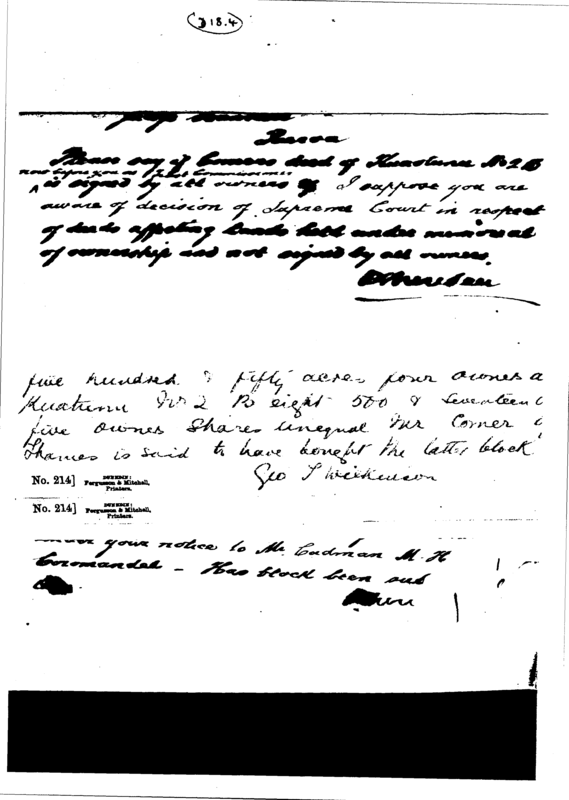 D18.4
Please say if Comers deed of Kuaotunu No 2 B
now before you as Trust Commissioner
is signed by all owners I suppose you are
aware of decision of Supreme Court in respect
of deeds affecting lands held under memorial
of ownership and not signed by all owners.
five hundred & fifty acres four owners a
Kuatunu No 2 B eight 500 & seventeen
five owners Shares unequal Mr Comer
Thames is said to have bought the latter block
Geo T Wilkinson
No. 214]
DUNEDIN:
Fergusson & Mitchell,
Printers.
No. 214]
DUNEDIN:
Fergusson & Mitchell,
Printers.
your notice to Mr. Cadman M. H
Coromandel – Has block been